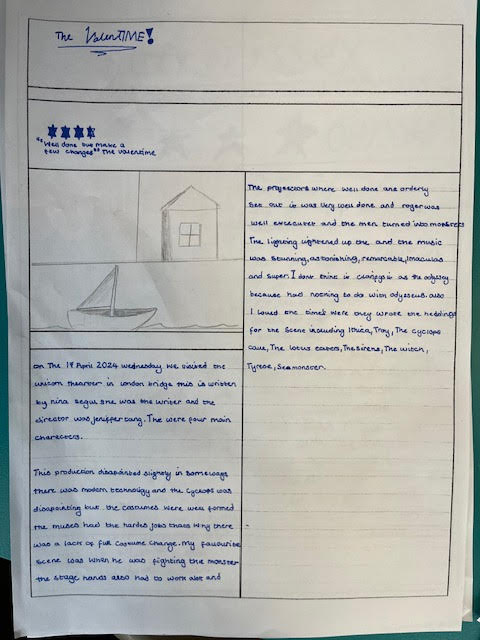 The ValenTIME!
"Well done but make a
few changes" The Valentime
on The 17 April 2024 wednesday we visited the
unicorn thearter in london bridge this is written
by nina segul she was the writer and the
director was jeniffer tang. The were four main
charecters.
This production disapointed slightly in some ways
there was modern technology and the cyclops was
disapointing but the costumes were well formed
the muses had the hardes jobs thats why there
was a lack of full costume change. My favourite
scene was when he was fighting the monster
the stage hands also had to work alot and
The projectors where well done are orderly
Set out it was very well done and roger was
well excecuter and the men turned into monsters
The lighting lightened up the and the music
was stunning, astonishing, remarkable, Imaculas
and super. I dont think it as the odyssey
because had nothing to do with odysseus also
I loved the times were they wrote the heddings
for the scene including Ithica, Troy, The cyclops
cave, The lotus eaters, The sirens, The witch,
Seamonster.